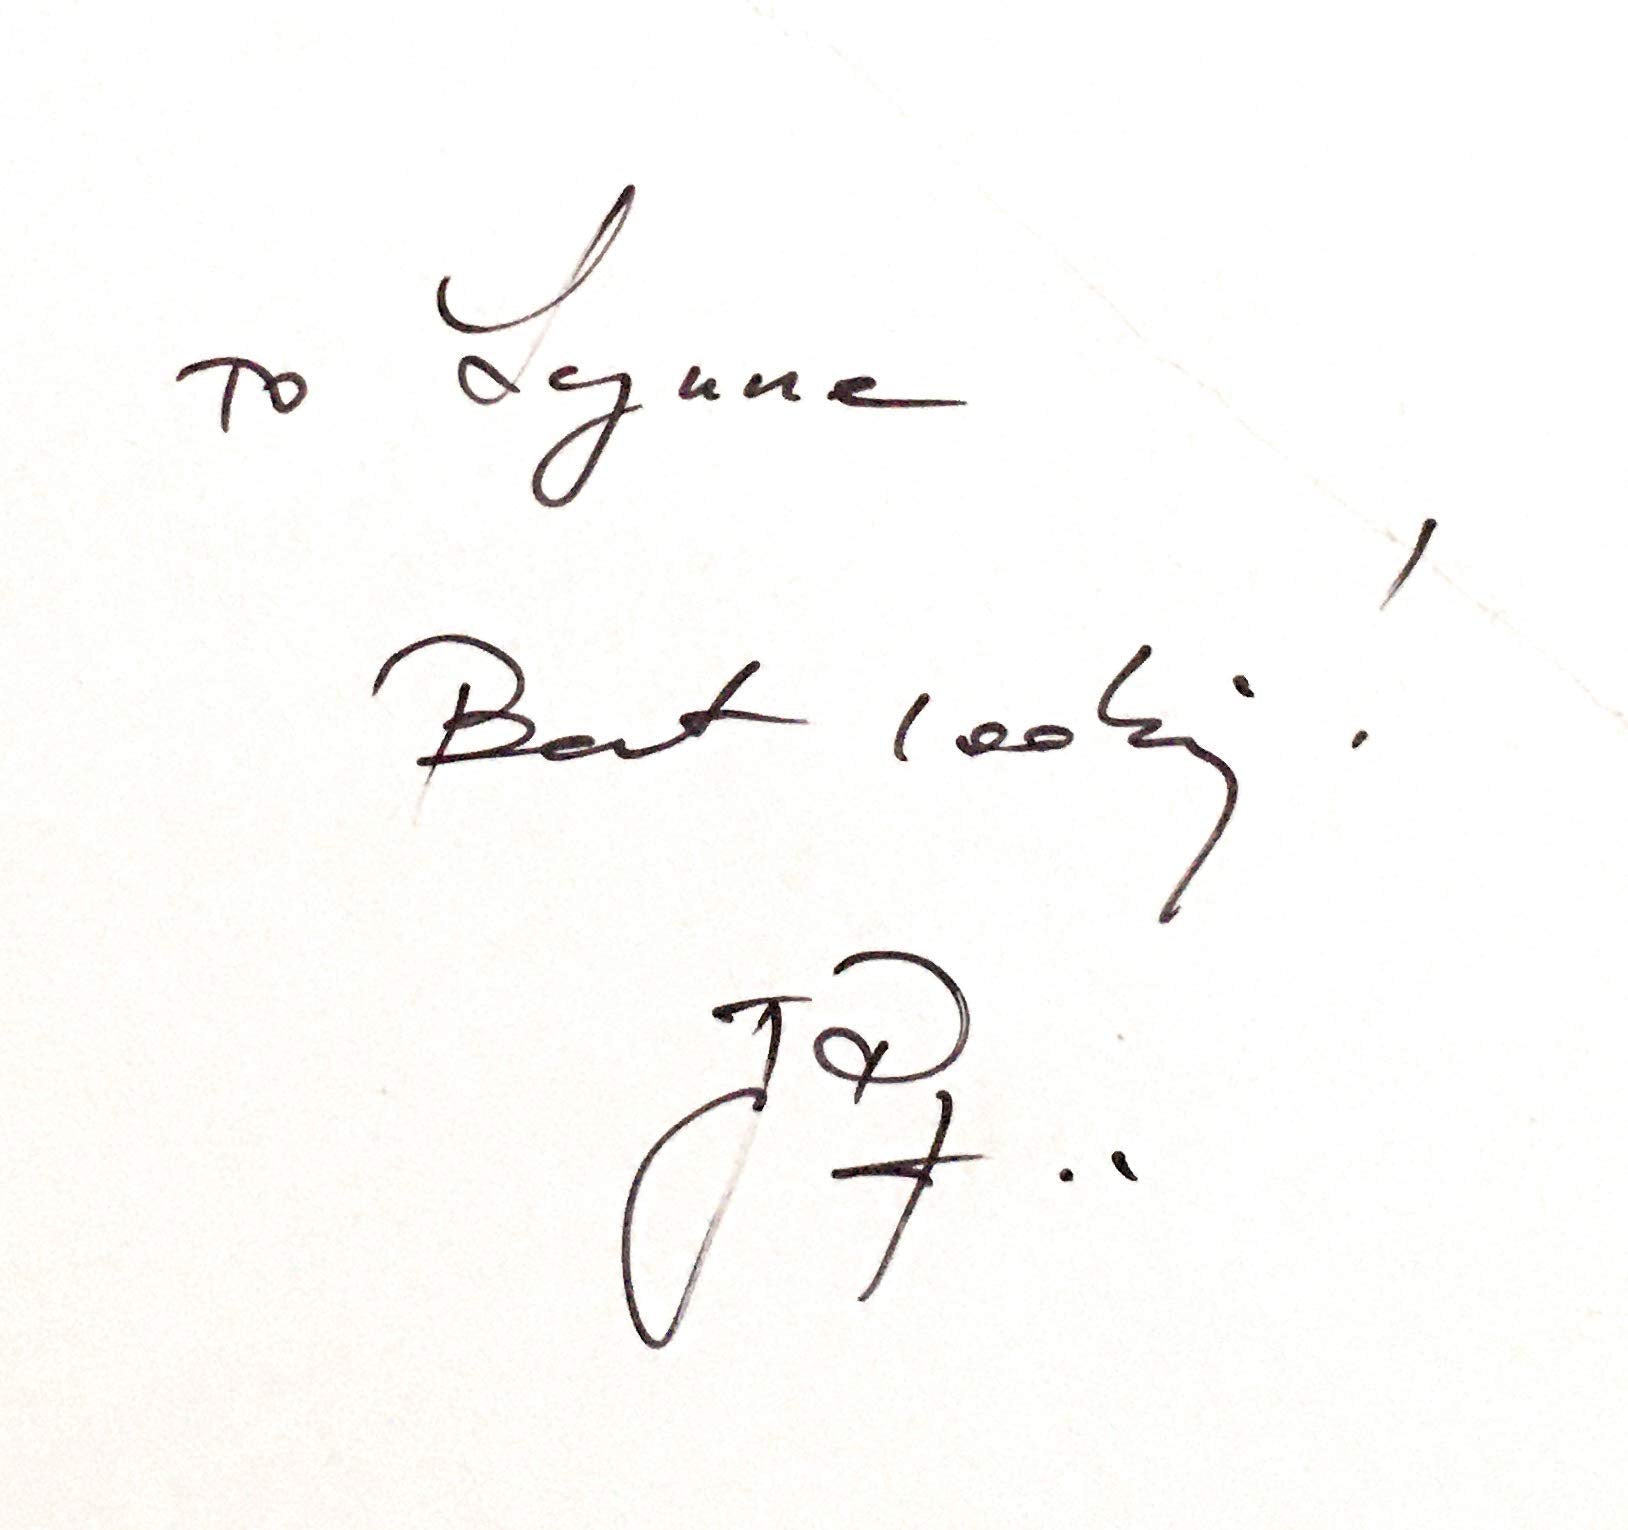 To Lynne
Best cooking!
J